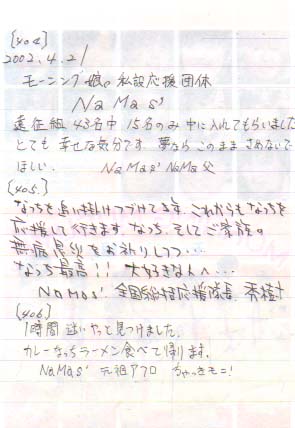 [404]
2002.4.21
モーニング娘。私設応援団体
NaMas'
遠征組 43名中 15名のみ 中に入れてもらいました
とても 幸せな気分です 夢なら このまま さめないで
ほしい。 NaMas' NaMa父
[405.]
なっちを追い掛けつづけてます。これからもなっちを
応援して行きます なっち、そして ご家族の
無病息災をお祈りしつつ…
なっち最高!! 大好きな人へ…
NaMas' 全国 応援隊長 秀樹
[406.]
1時間 迷いやっと見つけました。
カレーなっちラーメン食べて帰ります。
NaMas' 元祖アフロ ちゃっきモニ!